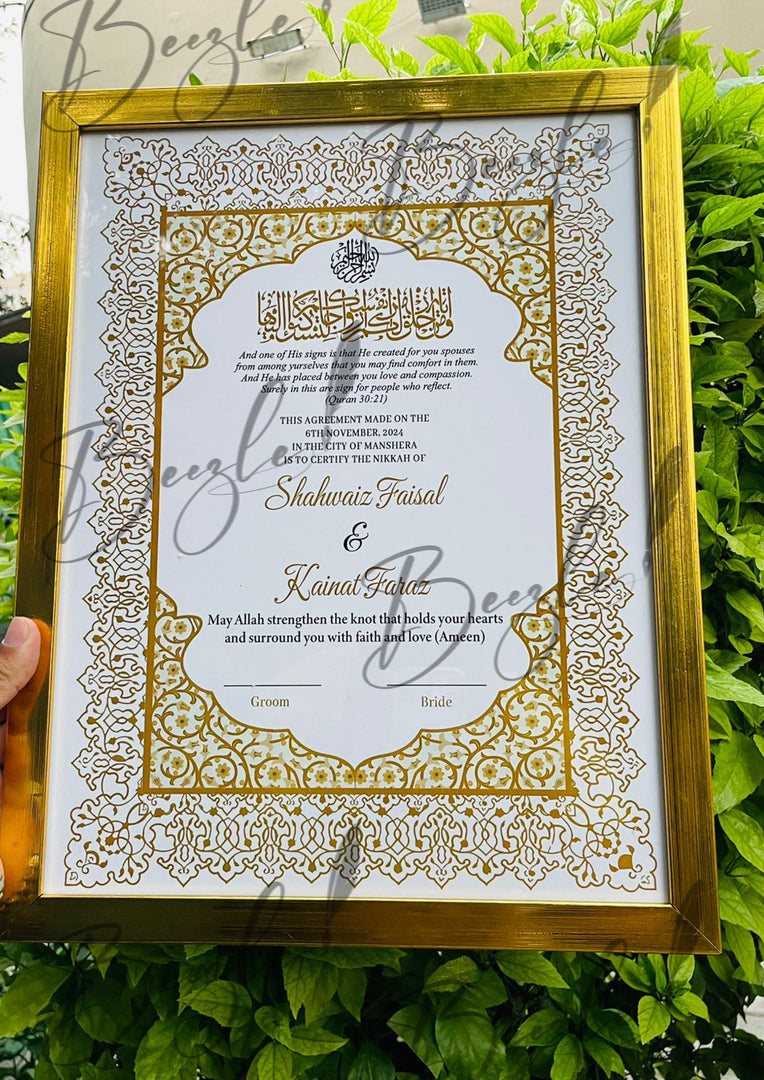 Beezle!
Beezle!
بسم الله الرحمن الرحيم
And one of His signs is that He created for you spouses
from among yurselves that you may find comfort in them.
And He has placed between you love and compassion.
Surely in this are sign for people who reflect.
(Quran 30:21)
THIS AGREEMENT MADE ON THE
6TH NOVEMBER, 2024
IN THE CITY OF MANSHERA
IS TO CERTIFY THE NIKKAH OF
Beezle!
Shahwaiz Faisal
&
Kainat Faraz
Beezle!
May Allah strengthen the knot that holds your hearts
and surround you with faith and love (Ameen)
Groom
Bride
Beezle!